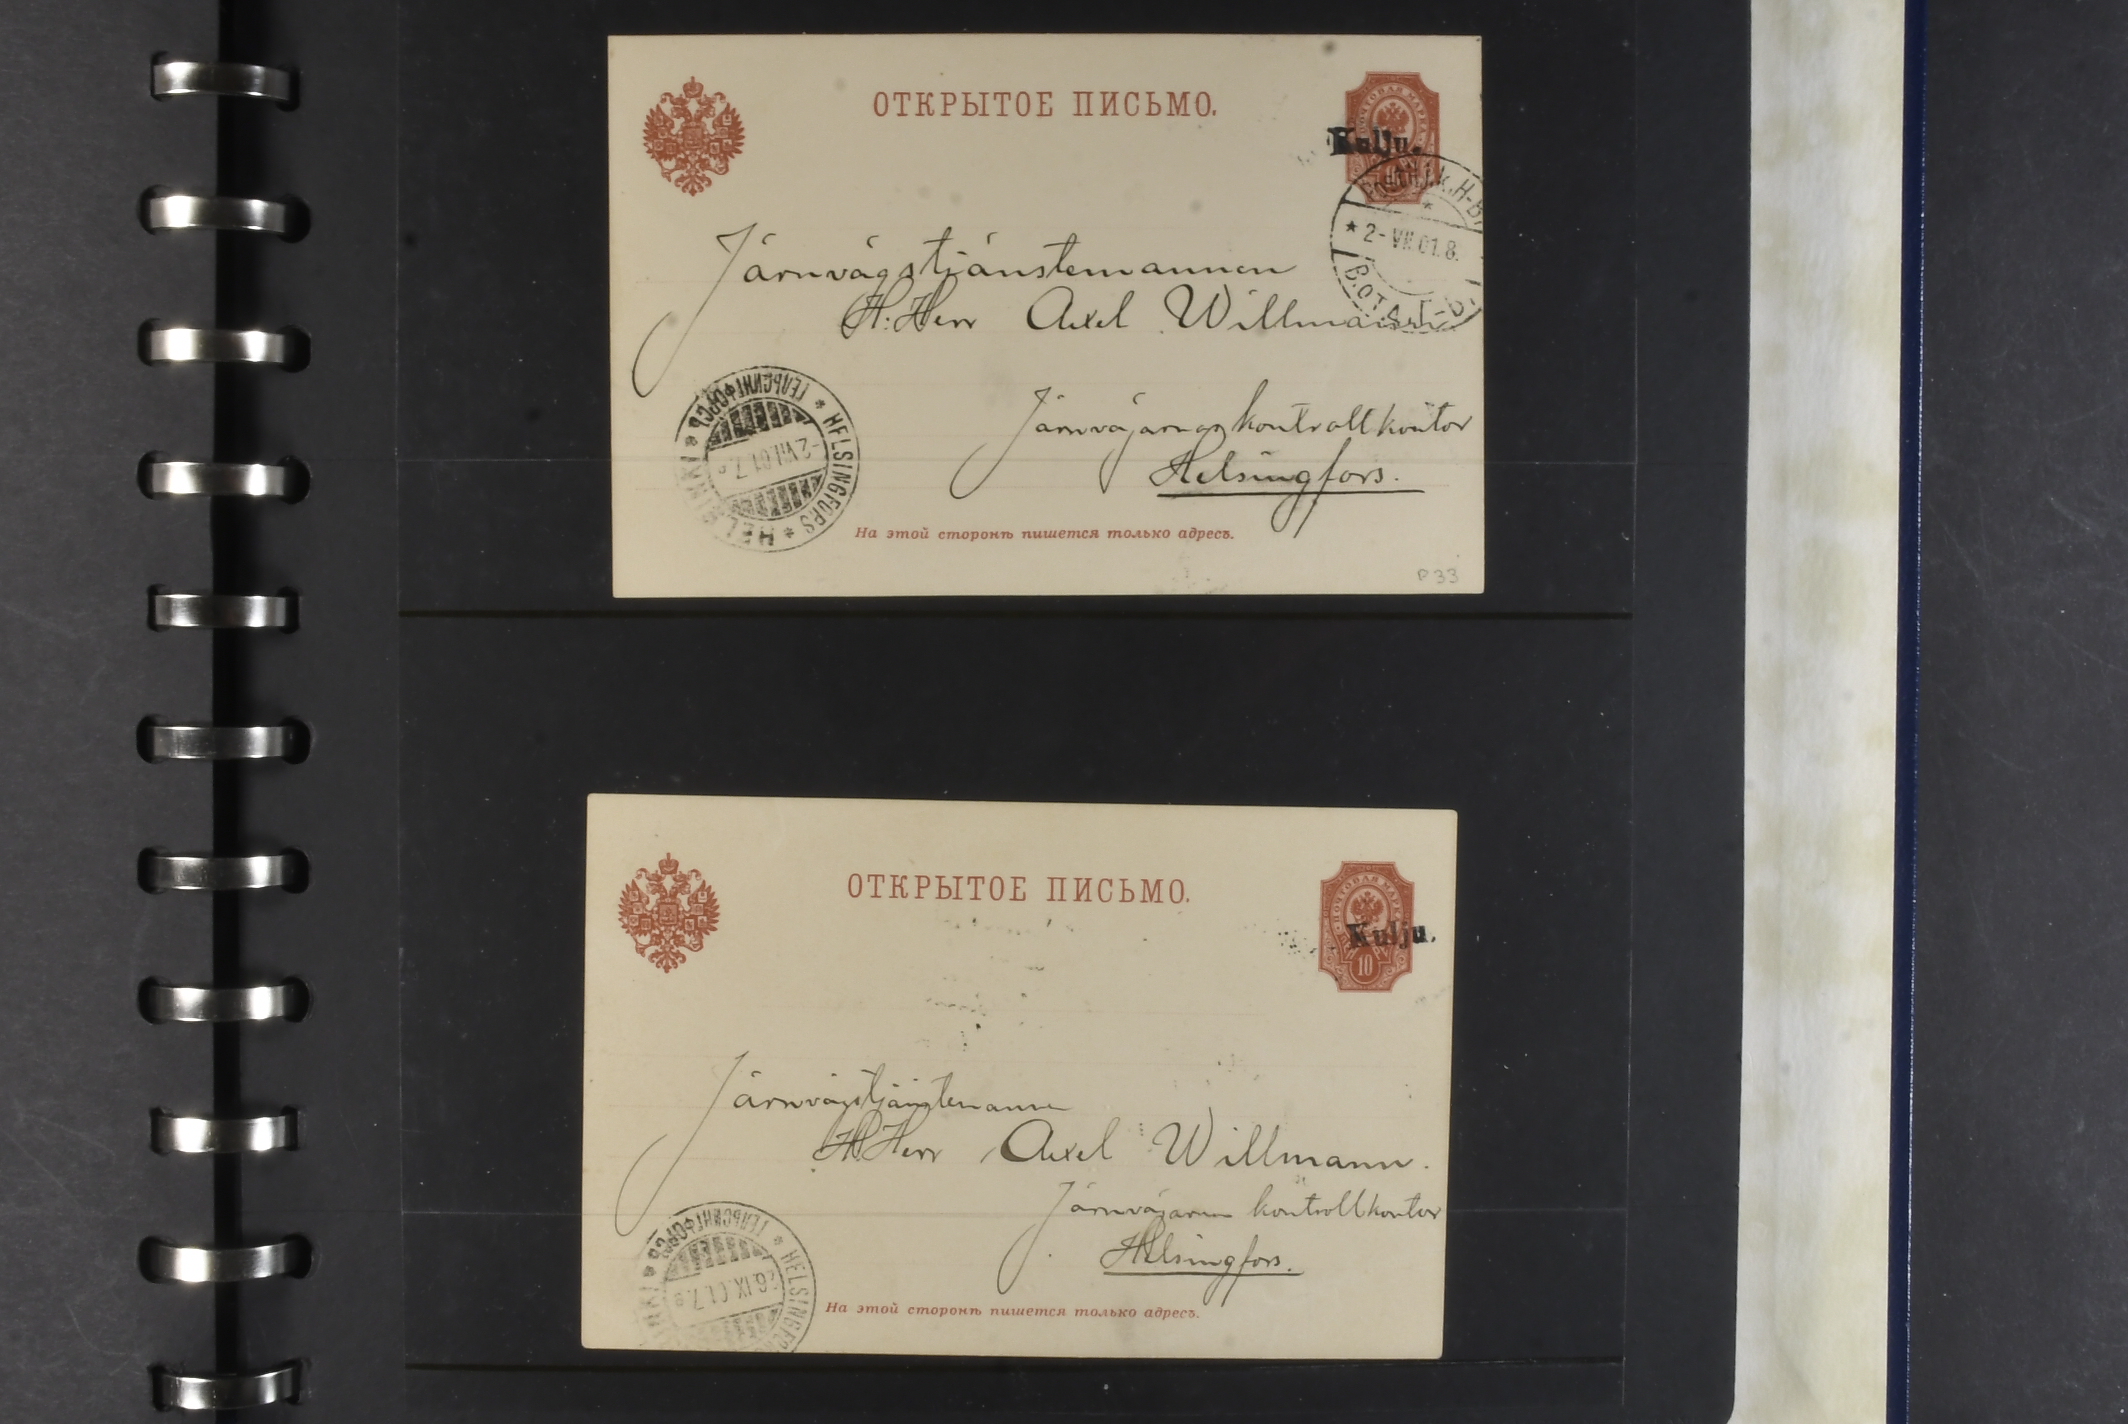 ОТКРЫТОЕ ПИСЬМО.
ПОЧТОВАЯ МАРКА
Kulju.
2-VII.01.8.
Järnvägstjänstemannen
H. Herr Axel Willmann
Järnvägarnas kontrollkontor
Helsingfors.
ГЕЛЬСИНГФОРСЪ * HELSINGFORS * HELSINKI *
2.VII.01.7.
На этой сторонѣ пишется только адресъ.
P 33
ОТКРЫТОЕ ПИСЬМО.
ПОЧТОВАЯ МАРКА
Kulju.
10
Järnvägstjänstemannen
H. Herr Axel Willmann.
Järnvägarnas kontrollkontor
Helsingfors.
ГЕЛЬСИНГФОРСЪ * HELSINGFO
26.IX.01.7.
На этой сторонѣ пишется только адресъ.